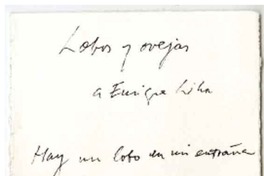 Lobos y ovejas
a Enrique Lihn
Hay un lobo en mi entraña